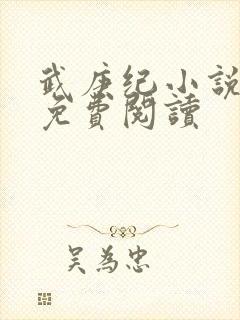 武庚纪小說
免費閱讀
吴為忠